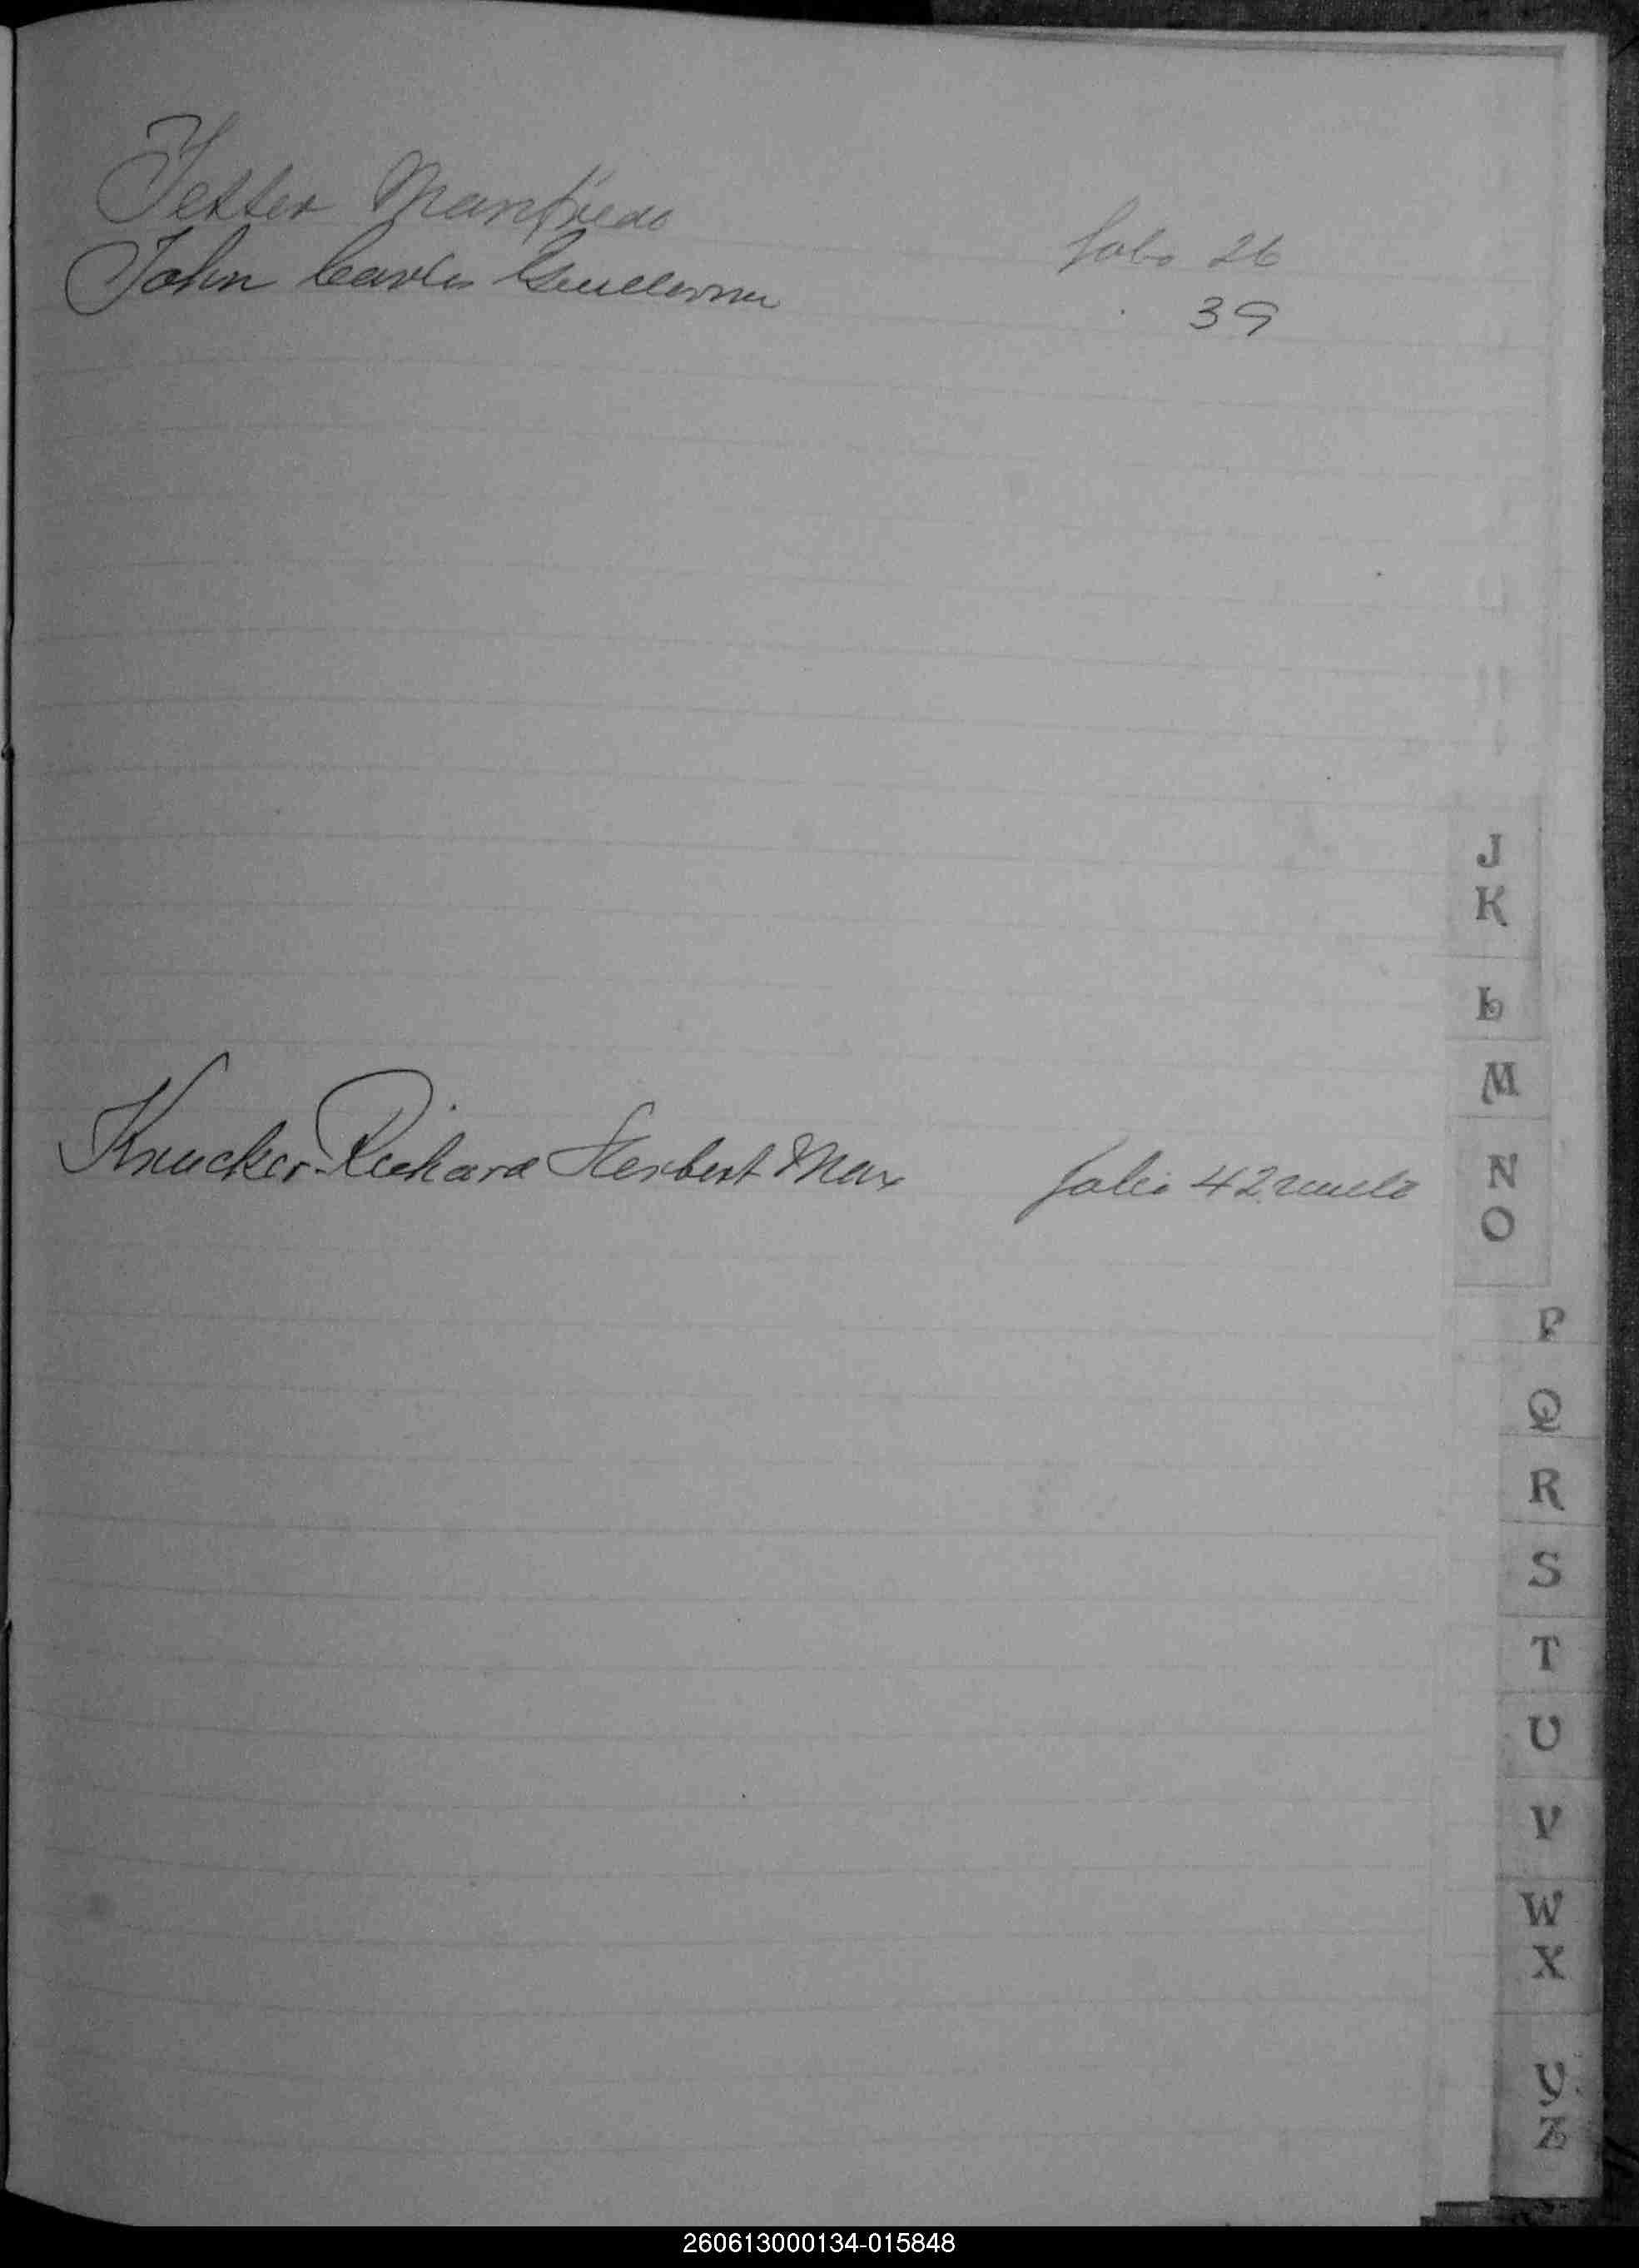 Jetter Manfredo folio 26
John Carlos Guillermo 39
Knucker Richard Herbert Max folio 42 vuelto
J
K
L
M
N
O
P
Q
R
S
T
U
V
W
X
Y
Z
260613000134-015848